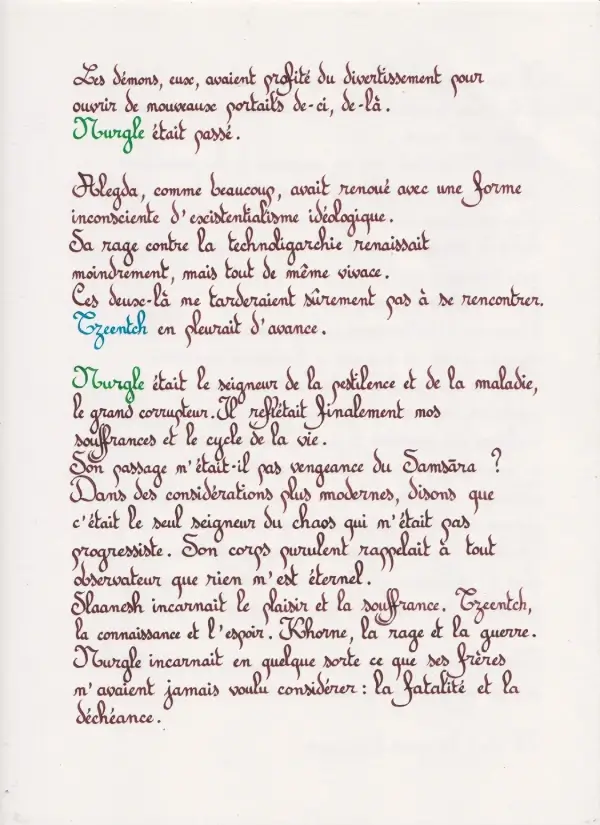 Les démons, eux, avaient profité du divertissement pour
ouvrir de nouveaux portails de-ci, de-là.
Nurgle était passé.
Alegda, comme beaucoup, avait renoué avec une forme
inconsciente d'existentialisme idéologique.
Sa rage contre la technoligarchie renaissait
moindrement, mais tout de même vivace.
Ces deux-là ne tarderaient sûrement pas à se rencontrer.
Tzeentch en pleurait d'avance.
Nurgle était le seigneur de la pestilence et de la maladie,
le grand corrupteur. Il reflétait finalement nos
souffrances et le cycle de la vie.
Son passage n'était-il pas vengeance du Samsāra ?
Dans des considérations plus modernes, disons que
c'était le seul seigneur du chaos qui n'était pas
progressiste. Son corps purulent rappelait à tout
observateur que rien n'est éternel.
Slaanesh incarnait le plaisir et la souffrance. Tzeentch,
la connaissance et l'espoir. Khorne, la rage et la guerre.
Nurgle incarnait en quelque sorte ce que ses frères
n'avaient jamais voulu considérer : la fatalité et la
déchéance.